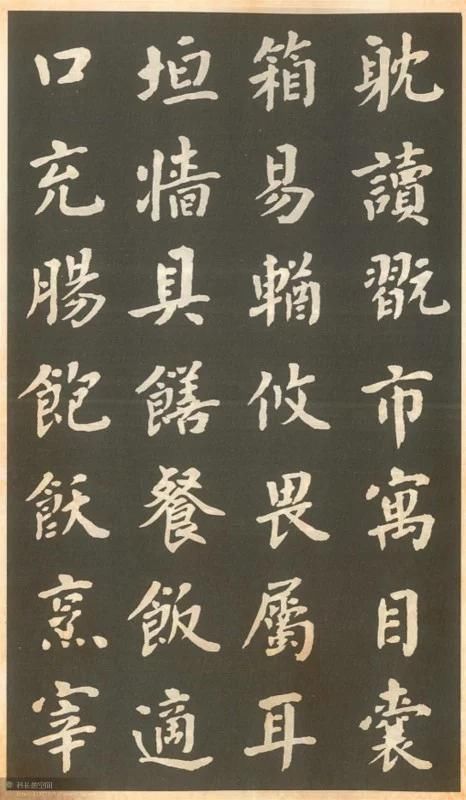 耽讀翫市寓目囊
箱易輶攸畏屬耳
垣牆具饍餐飯適
口充腸飽飫烹宰
科长的空间